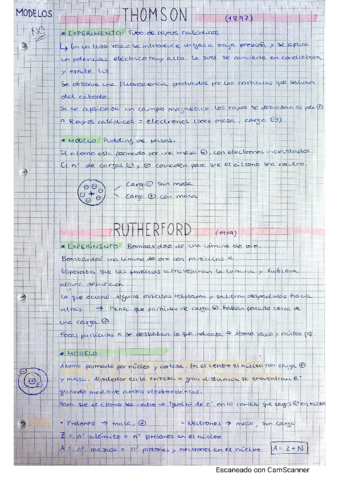 MODELOS
THOMSON (1897)
• EXPERIMENTO: Tubo de rayos catódicos
↳ En un tubo se introduce un gas a baja presión, y se aplica
un potencial eléctrico muy alto. El gas se convierte en conductor
y emite luz.
Se observa una fluorescencia producida por las partículas que salían
del cátodo.
Si se aplicaba un campo magnético los rayos se desviaban al polo ⊕
Rayos catódicos = electrones (tiene masa, carga ⊖)
• MODELO: Pudding de pasas.
El átomo está formado por una masa ⊕, con electrones incrustados.
El nº de cargas ⊕ y ⊖ coinciden para que el átomo sea neutro.
Carga ⊖ sin masa
Carga ⊕ con masa
RUTHERFORD (1911)
• EXPERIMENTO: Bombardeo de una lámina de oro
Bombardeó una lámina de oro con partículas α
Esperaba que las partículas atravesaran la lámina y
Lo que ocurrió: algunas partículas rebotaron y salieron despedidas hacia
atrás. → Tiene que partículas de carga ⊕ habían pasado cerca de
una carga ⊕
Pocas partículas α se desviaban lo que indicaba → átomo vacío y núcleo
• MODELO
Átomo formado por núcleo y corteza. En el centro el núcleo con carga ⊕
y masa. Alrededor en la corteza a gran distancia se encuentran
girando los electrones.
Para que el átomo sea neutro → Igual nº de e⁻ en la corteza que cargas ⊕ en núcleo
• Protones → masa, ⊕ • Neutrones → masa, sin carga
Z = nº atómico = nº protones en el núcleo
A = nº másico = nº protones y neutrones en el núcleo A = Z + N
Escaneado con CamScanner